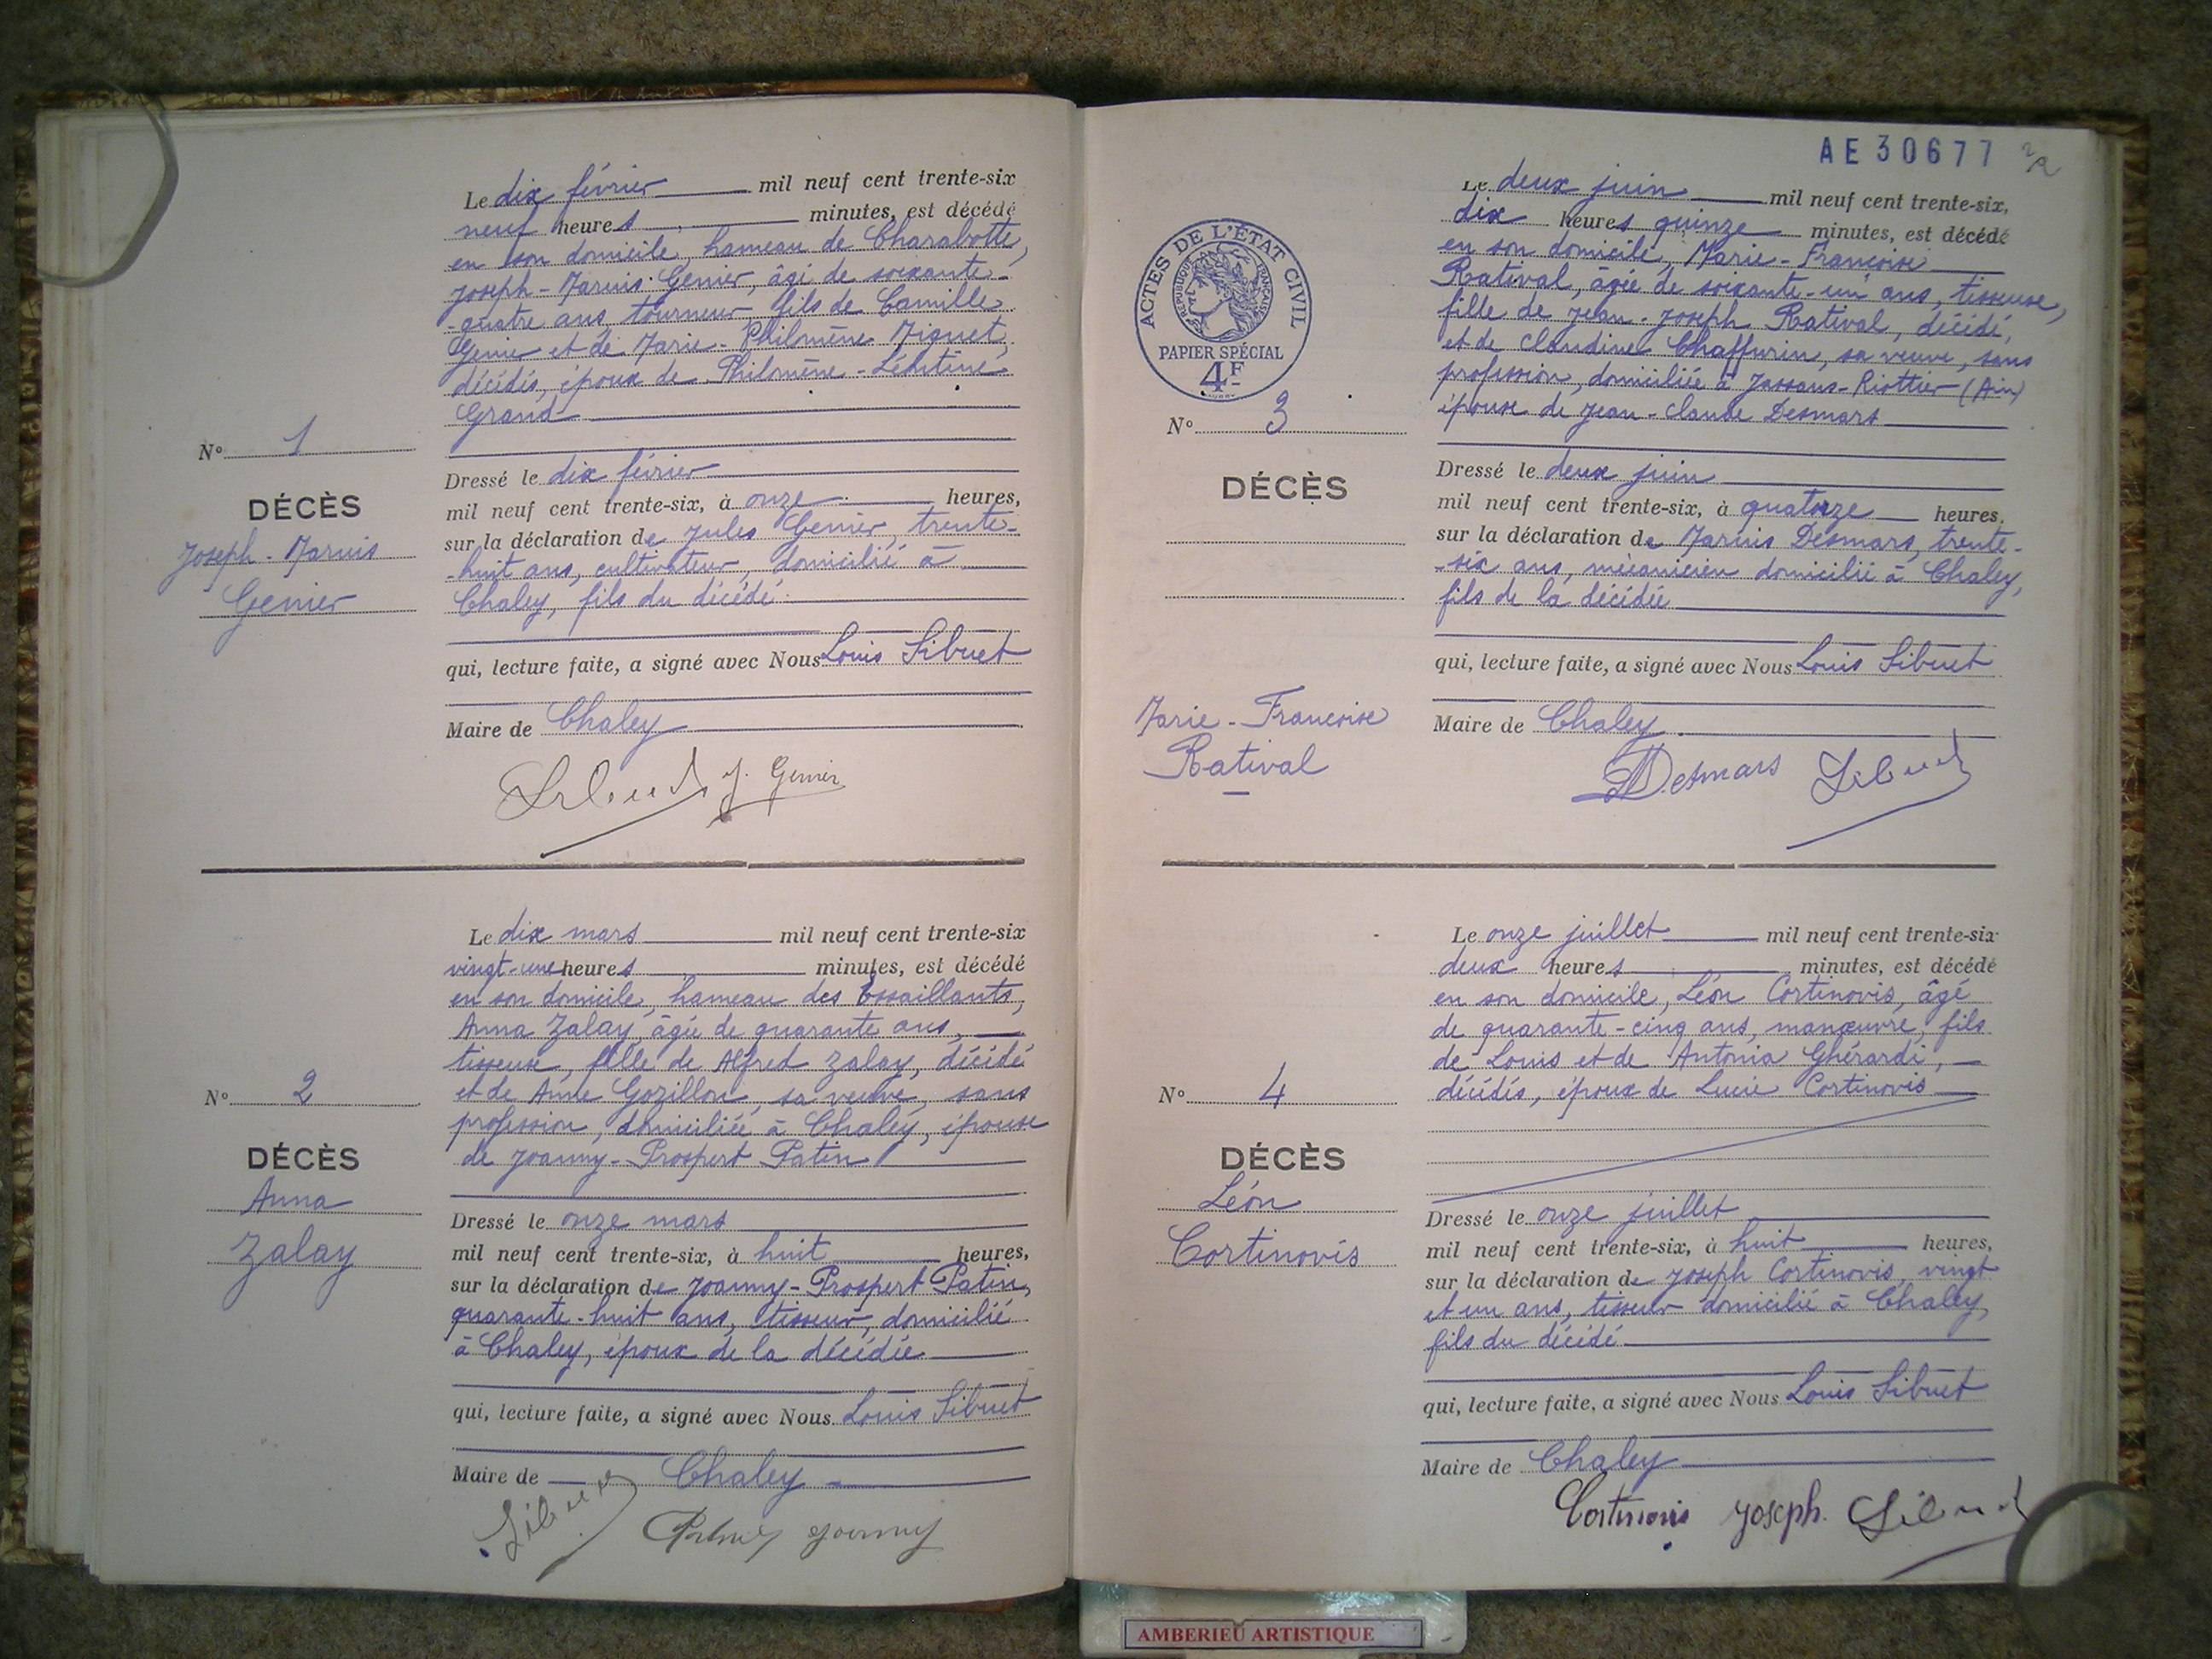 Le dix février mil neuf cent trente-six
neuf heures minutes, est décédé
en son domicile, hameau de Charabotte,
Joseph-Marius Genier, âgé de soixante-
-quatre ans, tourneur, fils de Camille
Genier et de Marie-Philomène Miguet,
décédés, époux de Philomène-Léontine
Grand
N° 1
DÉCÈS
Joseph-Marius
Genier
Dressé le dix février
mil neuf cent trente-six, à onze heures,
sur la déclaration de Jules Genier, trente-
-huit ans, cultivateur, domicilié à
Chaley, fils du décédé
qui, lecture faite, a signé avec Nous Louis Sibuet
Maire de Chaley
Sibuet J. Genier
Le dix mars mil neuf cent trente-six
vingt-une heures minutes, est décédé
en son domicile, hameau des Essaillants,
Anna Zalay, âgée de quarante ans,
tisseuse, fille de Alfred Zalay, décédé
et de Anne Gozillon, sa veuve, sans
profession, domiciliée à Chaley, épouse
de Joanny-Prospert Patin
N° 2
DÉCÈS
Anna
Zalay
Dressé le onze mars
mil neuf cent trente-six, à huit heures,
sur la déclaration de Joanny-Prospert Patin,
quarante-huit ans, tisseur, domicilié
à Chaley, époux de la décédée
qui, lecture faite, a signé avec Nous Louis Sibuet
Maire de Chaley
Sibuet Joanny
AE30677
ACTES DE L'ÉTAT CIVIL
RÉPUBLIQUE FRANÇAISE
PAPIER SPÉCIAL
4F
Le deux juin mil neuf cent trente-six,
dix heures quinze minutes, est décédé
en son domicile, Marie-Françoise
Ratival, âgée de soixante-un ans, tisseuse,
fille de Jean-Joseph Ratival, décédé,
et de Claudine Chaffurin, sa veuve, sans
profession, domiciliée à Jassans-Riottier (Ain)
épouse de Jean-Claude Desmars
N° 3
DÉCÈS
Marie-Françoise
Ratival
Dressé le deux juin
mil neuf cent trente-six, à quatorze heures,
sur la déclaration de Marius Desmars, trente-
-six ans, mécanicien domicilié à Chaley,
fils de la décédée
qui, lecture faite, a signé avec Nous Louis Sibuet
Maire de Chaley
Desmars Sibuet
Le onze juillet mil neuf cent trente-six
deux heures minutes, est décédé
en son domicile, Léon Cortinovis, âgé
de quarante-cinq ans, manœuvre, fils
de Louis et de Antonia Ghérardi,
décédés, époux de Lucie Cortinovis
N° 4
DÉCÈS
Léon
Cortinovis
Dressé le onze juillet
mil neuf cent trente-six, à huit heures,
sur la déclaration de Joseph Cortinovis, vingt
et un ans, tisseur domicilié à Chaley,
fils du décédé
qui, lecture faite, a signé avec Nous Louis Sibuet
Maire de Chaley
Cortinovis Joseph. Sibuet
AMBERIEU ARTISTIQUE